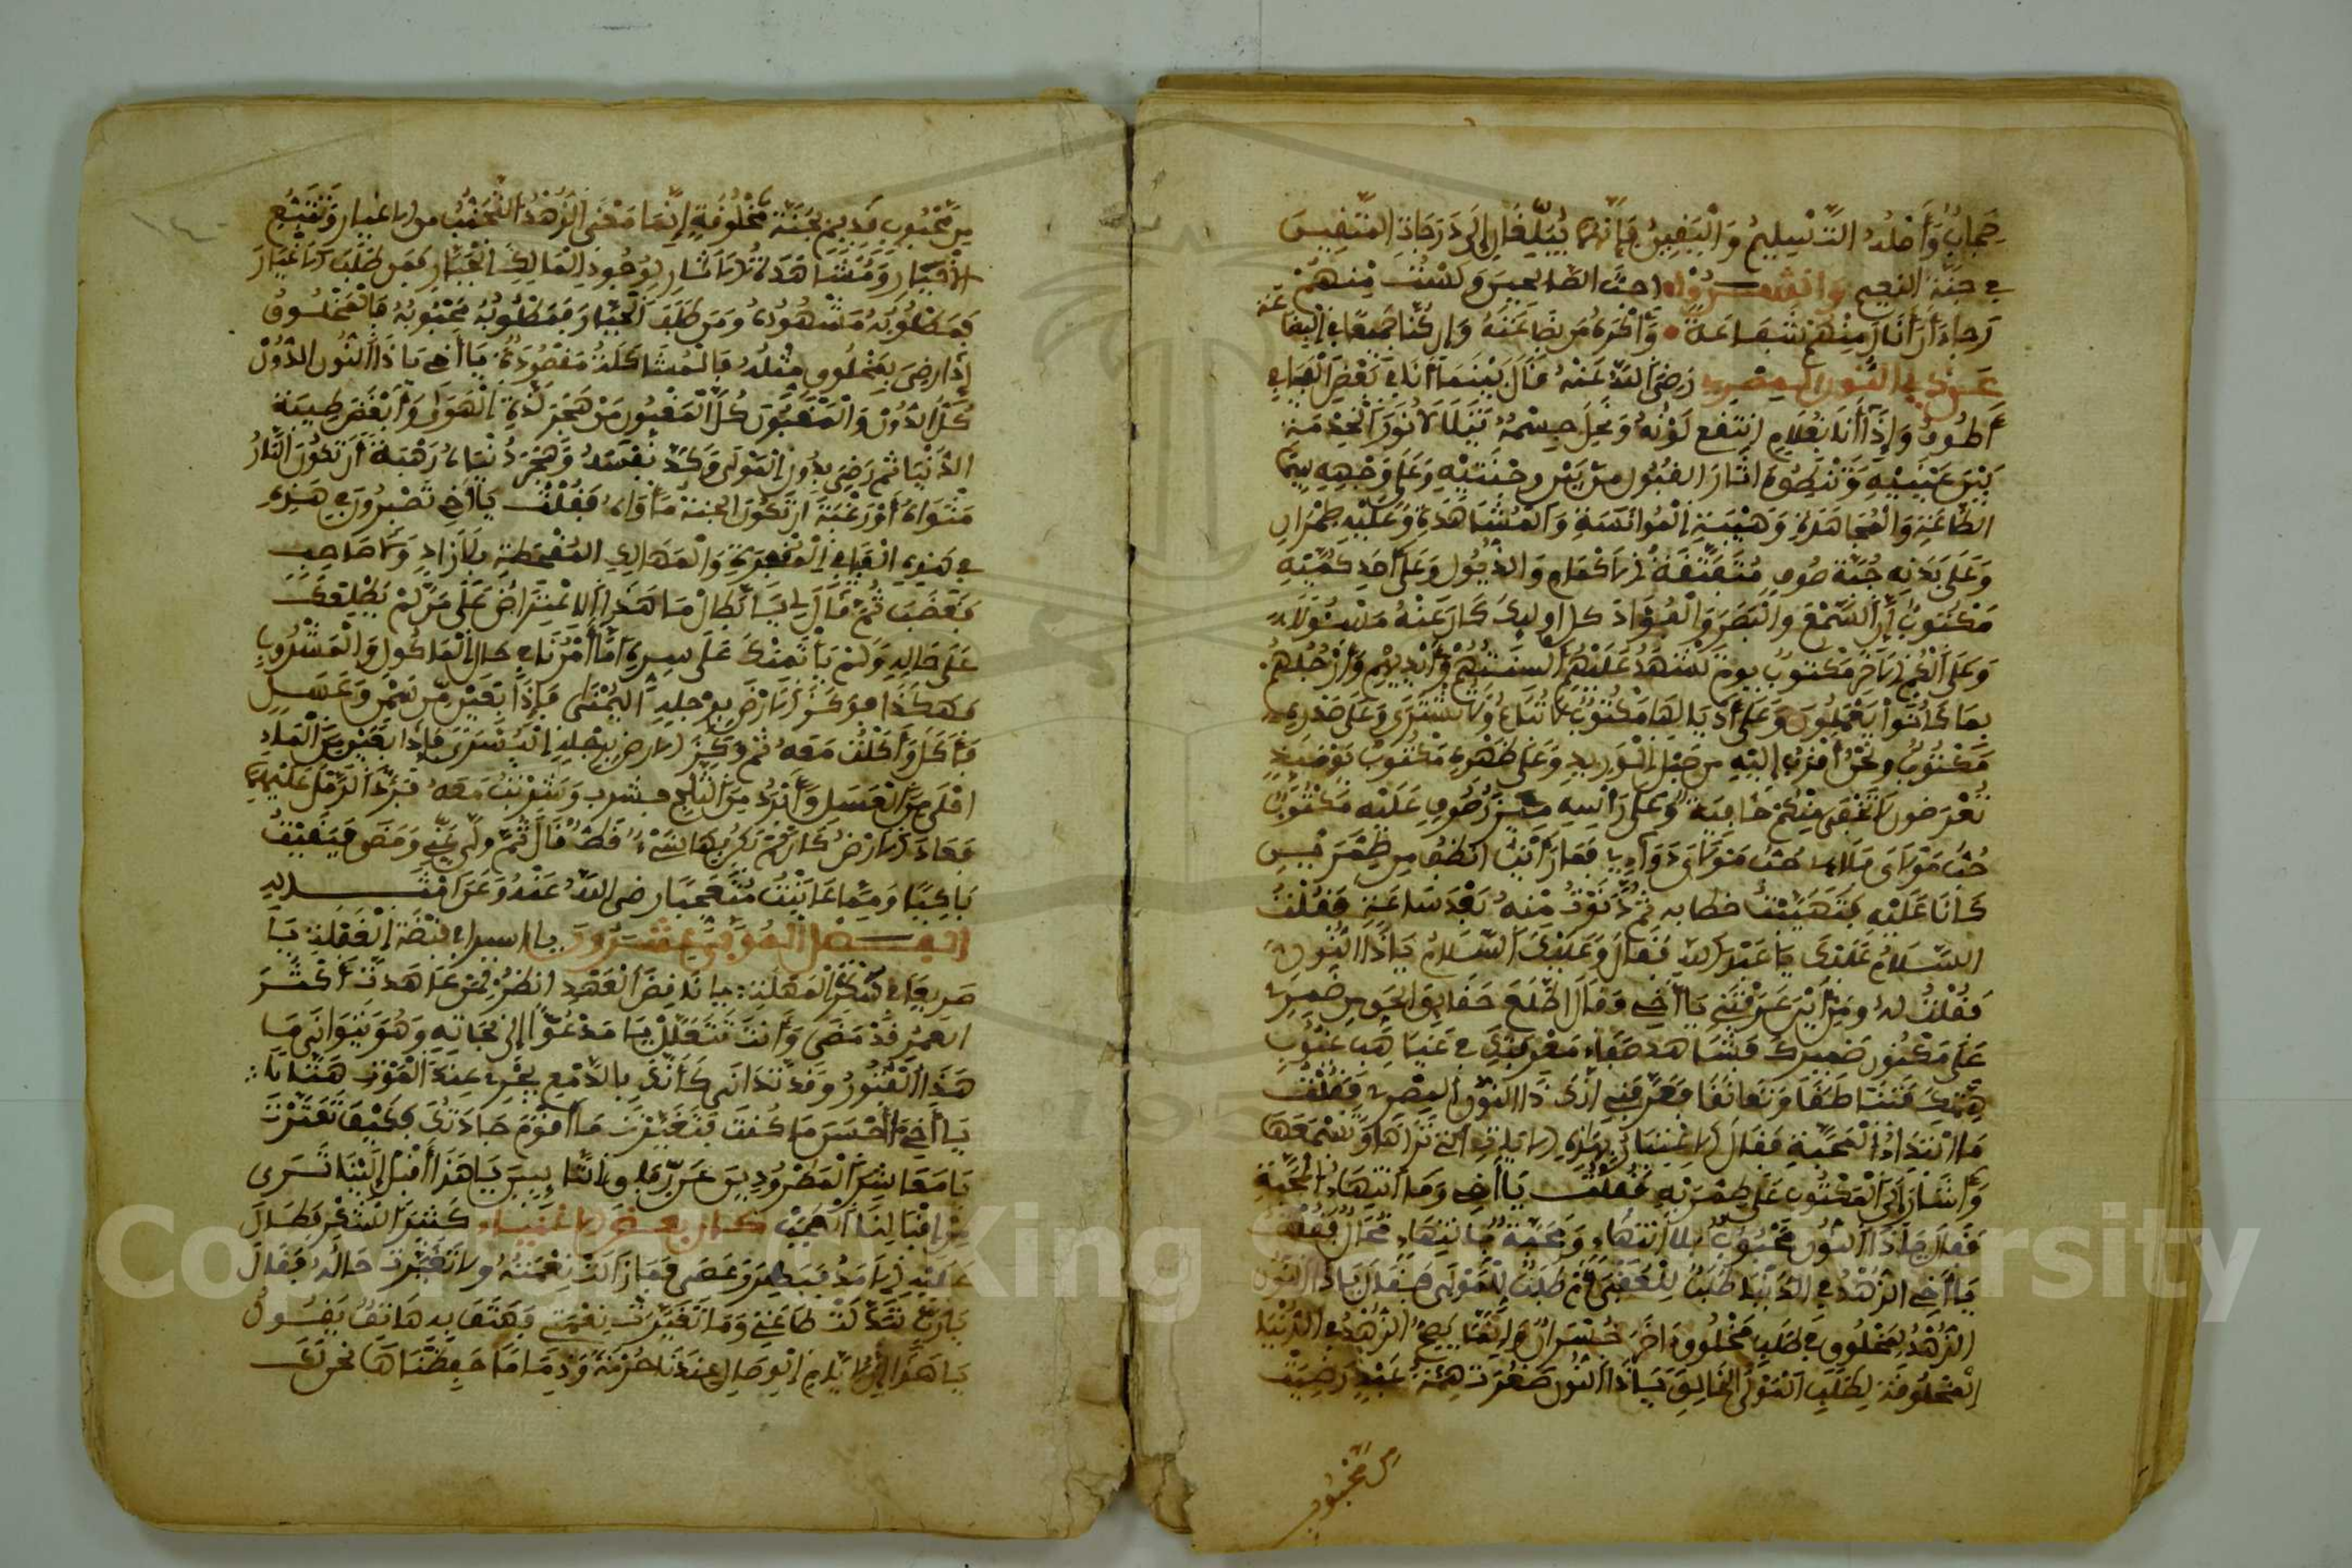 حجابٌ وَأَصْلُهُ التَّسْلِيمُ وَالْيَقِينُ فَإِنَّهُمَا يُبَلِّغَانِ إِلَى دَرَجَاتِ الْمُتَّقِينَ
في جنة النعيم وانشــدوا احبّ الصالحين وَلَسْتُ مِنْهُمْ
رَجَاءَ أَنْ أَنَالَ مِنْهُمْ شَفَاعَةً وَأَكْرَهُ مَن بِضَاعَتُهُ وَإِن كُنَّا جَمِيعًا فِي البضاعة
عَن ذِي النُّونِ المِصْرِي رَضِيَ اللَّهُ عَنْهُ قَالَ بَيْنَمَا أَنَا فِي بَعْضِ الْفَيَافِي
أَطُوفُ وَإِذَا أَنَا بِغُلَامٍ انْتَقَعَ لَوْنُهُ وَنَحِلَ جِسْمُهُ نُورُ الْخِدْمَةِ
بَيْنَ عَيْنَيْهِ آثَارُ القبُول مِن بَيْنِ وجْنَتَيْهِ وَعَلَى وَجْهِهِ سِيمَا
الطَّاعَةِ وَالْمُجَاهَدَةِ وَهَيْبَةِ الْمُؤَانَسَةِ وَالْمُشَاهَدَةِ وَعَلَيْهِ طِمْرَانِ
وَعَلَى بَدَنِهِ جُبَّة صُوفٍ الاكْمَامِ وَالذُّيُولِ وَعَلَى أَحَدِ كُمَّيْهِ
مَكْتُوبٌ إِنَّ السَّمْعَ وَالْبَصَرَ وَالْفُؤَادَ كل أوليك كَانَ عَنْهُ مَسْئُولًا
وَعَلَى الْكُمِّ الآخَرِ مَكْتُوبٌ يومَ تَشْهَدُ عَلَيْهِمْ أَلْسِنَتُهُمْ وَأَيْدِيهِمْ وَأَرْجُلُهُم
بِمَا كَانُوا يَعْمَلُونَ وَعَلَى أَذْيَالِهَا مَكْتُوبٌ لا تُبَاعُ وَلا تُشْتَرَى وَعَلَى صَدْرِهِ
مَكْتُوبٌ ونَحْنُ أَقْرَبُ إِلَيْهِ مِن حَبْلِ الْوَرِيدِ وَعَلَى ظَهْرِهِ مَكْتُوبٌ يَوْمَئِذٍ
تُعْرَضُونَ لا تَخْفَى مِنْكُمْ خَافِيَة وَعَلَى رَأْسِهِ مِئْزَرُ صُوفٍ عَلَيْهِ مَكْتُوبٌ
حُبُّ مَوْلَايَ حُبُّ مَوْلَايَ دَوَاءِيَا
كَانَا عَلَيْهِ خطابه ثُمَّ دَنَوْتُ مِنْهُ بَعْدَ سَاعَةٍ فَقُلْتُ
السَّلَامُ عَلَيْكَ يَا عَبْدَ اللهِ فَقَالَ وَعَلَيْكَ السَّلَامُ يَا ذَا النُّون
فَقُلْتُ لَهُ ومِنْ أَيْنَ عَرَفْتَنِي يَا أَخِي وَقَالَ اطَّلَعَ حَقَايِقُ الحَقِّ مِن ضَمِيرِي
عَلَى مَكْنُونِ ضَمِيرِكَ فَشَاهَدَ صَفَاءَ مَعْرِفَتِي فِي غَيَاهِبِ غُيُوبِ
فَعَرَّفَنِي أَنَّكَ ذَا النُّونِ المِصْرِي فَقُلْتُ
مَا ابْتِدَاءُ الْمَحَبَّةِ فَقَالَ التِي تَرَاهَا وَتَسْمَعُهَا
وَأَشَارَ إِلَى الْمَكْتُوبِ عَلَى طِمْرَيْهِ فَقُلْتُ يَا أَخِي وَمَا انْتِهَاءُ الْمَحَبَّةِ
فَقَالَ يَا ذَا النُّونِ مَحْبُوبٌ بِلَا انْتِهَاءٍ وَمَحَبَّةٌ بِانْتِهَاءٍ مُحَالٌ فَقُلْتُ
يَا أَخِي الزُّهْدُ فِي الدُّنْيَا طَلَبٌ لِلْعُقْبَى أَمْ طَلَبٌ لِلْمَوْلَى فَقَالَ يَا ذَا النُّونِ
الزُّهْدُ بِمَخْلُوقٍ فِي طَلَبِ مَخْلُوقٍ آخَرَ خُسْرَانٌ وَإِنَّمَا يَصِحُّ الزُّهْدُ فِي الدُّنْيَا
الْمَخْلُوقَةِ لِطَلَبِ الْمَوْلَى الخَالِقِ يَا ذَا النُّونِ صَغُرَتْ هِمَّةُ عَبْدٍ رَضِيَتْ
من محبوب
مِن مَحْبُوبٍ قَدِيمٍ بِجَنَّةٍ مَخْلُوقَةٍ إِنَّمَا مَعْنَى الزُّهْدِ مِن الاغيار وَتَتَبُّع
الأخيَار وَمُشَاهَدَةُ الآثَارِ لِوُجُودِ الْمَالِكِ الْجَبَّارِ فَمَن طَلَبَ الأَغْيَارَ
فَمَطْلُوبُهُ مَشْهُودُهُ وَمَن طَلَبَ الْجَبَّارَ فَمَطْلُوبُهُ مَحْبُوبُهُ فَالْمَخْلُوقُ
إِذَا رَضِيَ بِمَخْلُوقٍ مِثْلِهُ فَالْمُشَاكَلَةُ مَقْصُودُهُ يَا أَخِي يَا ذَا النُّون الدُّونُ
كُلُّ الدُّونِ وَالْمَغْبُونُ كُلُّ الْمَغْبُونِ مَنْ هَجَرَ لَذَّةَ الْهَوَى وَأَبْغَضَ طِيبَةَ
الدُّنْيَا ثُمَّ رَضِيَ بِدُونِ الْمَوْلَى وَكَدَّ نَفْسَهُ وَهَجَرَ دُنْيَاهُ رَهْبَةً أَن تَكُونَ النَّارُ
مَثْوَاهُ أَوْ رَغْبَةً أَن تَكُونَ الجَنَّةُ مَأْوَاهُ فَقُلْتُ يَا أَخِي تَصْبِرُونَ فِي هَذِهِ
فِي هَذِهِ الْفَيَافِي الْمُقْفِرَةِ وَالْمَهَالِكِ بِلَا زَادٍ وَلَا صَاحِبٍ
فَغَضِبَ ثُمَّ قَالَ لِي يَا بَطَّالُ مَا هَذَا الاعْتِرَاضُ عَلَى مَن لَمْ يُطْلِعْكَ
عَلَى حَالِهِ وَلَمْ يَأْتَمِنْكَ عَلَى سِرِّهِ أَمَّا أَمْرُنَا فِي حال الْمَأكُولِ وَالْمَشْرُوبِ
فَهَكَذَا فَوَكَزَ الأَرْضَ بِرِجْلِهِ الْيُمْنَى فَإِذَا بِعَيْنٍ مِّن سَمْنٍ وَعَسَلٍ
فَأَكَلَ وَأَكَلْتُ مَعَهُ ثُمَّ وَكَزَ الأرض بِرِجْلِهِ الْيُسْرَى فَإِذَا بِعَيْنٍ مِنَ الْمَاءِ
احْلَى مِنَ الْعَسَلِ وَأَبْرَدُ مِنَ الثَّلْجِ فشرب وَشَرِبْتُ مَعَهُ فَرَدَّ الرَّمْلَ عَلَيْهِمَا
فَعَادَتِ الأرْضُ كَأَن لَّمْ يَكُنْ بِهَا شَيْءٌ قَطُّ قَالَ ثُمَّ وَلَّى عَنِّي وَمَضَى فَبَقِيتُ
بَاكِيًا وَمِمَّا عَايَنْتُ مُتَعَجِّبًا رضى اللهُ عَنْهُ وَعَن امْثَـــالِهِ
الفصْل الْمُوَفِّي عِشْرُونَ يا اسيرا في قَبْضَةِ الْغَفْلَةِ يَا
صَرِيعًا فِي سَكْرَةِ الْمُهْلَةِ يا نَاقِضَ الْعَهْدِ انظُرْ لِمَن عَاهَدتَّ أَكْثَرَ
العُمْرِ قَدْ مَضَى وَأَنتَ تَتَعَلَّلُ يَا مَدْعُوًّا إِلَى نَجَاتِهِ وَهُوَ يَتَوَانَى مَا
هَذَا الْفُتُورُ وَقَدْ تَدَانَى كَأَنَّكَ بِالدَّمْعِ يَجْرِي عِنْدَ الْمَوْتِ هَتَّانًا
يَا أَخِي مَا أَحْسَنَ مَا كُنتَ فَتَغَيَّرْتَ مَا أَقْوَمَ جَادَّتَكَ فَكَيْفَ تَعَثَّرْتَ
يَا مَعَاشِرَ الْمَطْرُودِينَ عَن يَا هَذَا أَقْبِلْ إِلَيْنَا تَرَى
مِنْ إِقْبَالِنَا الْعَجَبْ كان بعضُ الأغنياءِ كَثِيرَ الشُّكْرِ فَطَالَ
عَلَيْهِ الأَمَدُ فَبَطِرَ وَعَصَى فَمَا زَالَتْ نِعْمَتُهُ ولا تَغَيَّرَتْ حَالُهُ فَقَالَ
يَا رَبِّ تَبَدَّلَتْ طَاعَتِي وَمَا تَغَيَّرَتْ نِعْمَتِي فَهَتَفَ بِهِ هَاتِفٌ يَقُولُ
يَا هَذَا لِأَيَّامِ الْوِصَالِ عِنْدَنَا حُرْمَةٌ وَذِمَامًا حَفِظْنَاهَا نحن لَكَ